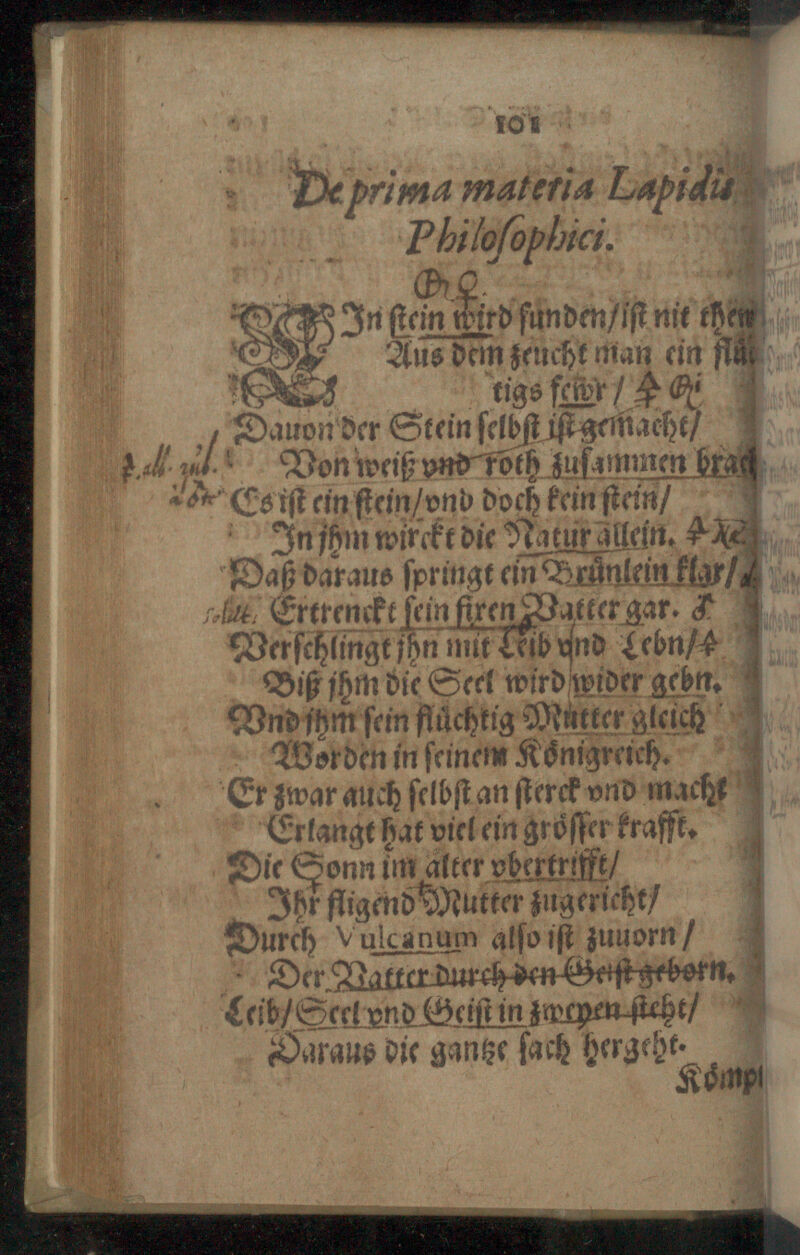 101
De prima materia Lapidis
Philosophici.
EIn stein wird funden/ist nit thew
Aus dem zeucht man ein flüch
tigs fewr /
Dauon der Stein selbst ist gemacht/
Von weiß vnd roth zusammen bracht
Es ist ein stein/vnd doch kein stein/
In jhm wirckt die Natur allein.
Daß daraus springt ein Brünlein klar/
Ertrenckt sein fixen Vatter gar.
Verschlingt jhn mit Leib vnd Lebn/
Biß jhm die Seel wird wider gebn.
Vnd jhm sein flüchtig Mutter gleich
Worden in seinem Königreich.
Er zwar auch selbst an sterck vnd macht
Erlangt hat viel ein grösser krafft.
Die Sonn im alter vbertrifft/
Ihr fligend Mutter zugericht/
Durch Vulcanum also ist zuuorn /
Der Vatter durch den Geist geborn.
Leib/Seel vnd Geist in zweyen steht/
Daraus die gantze sach hergeht.
Kömpt